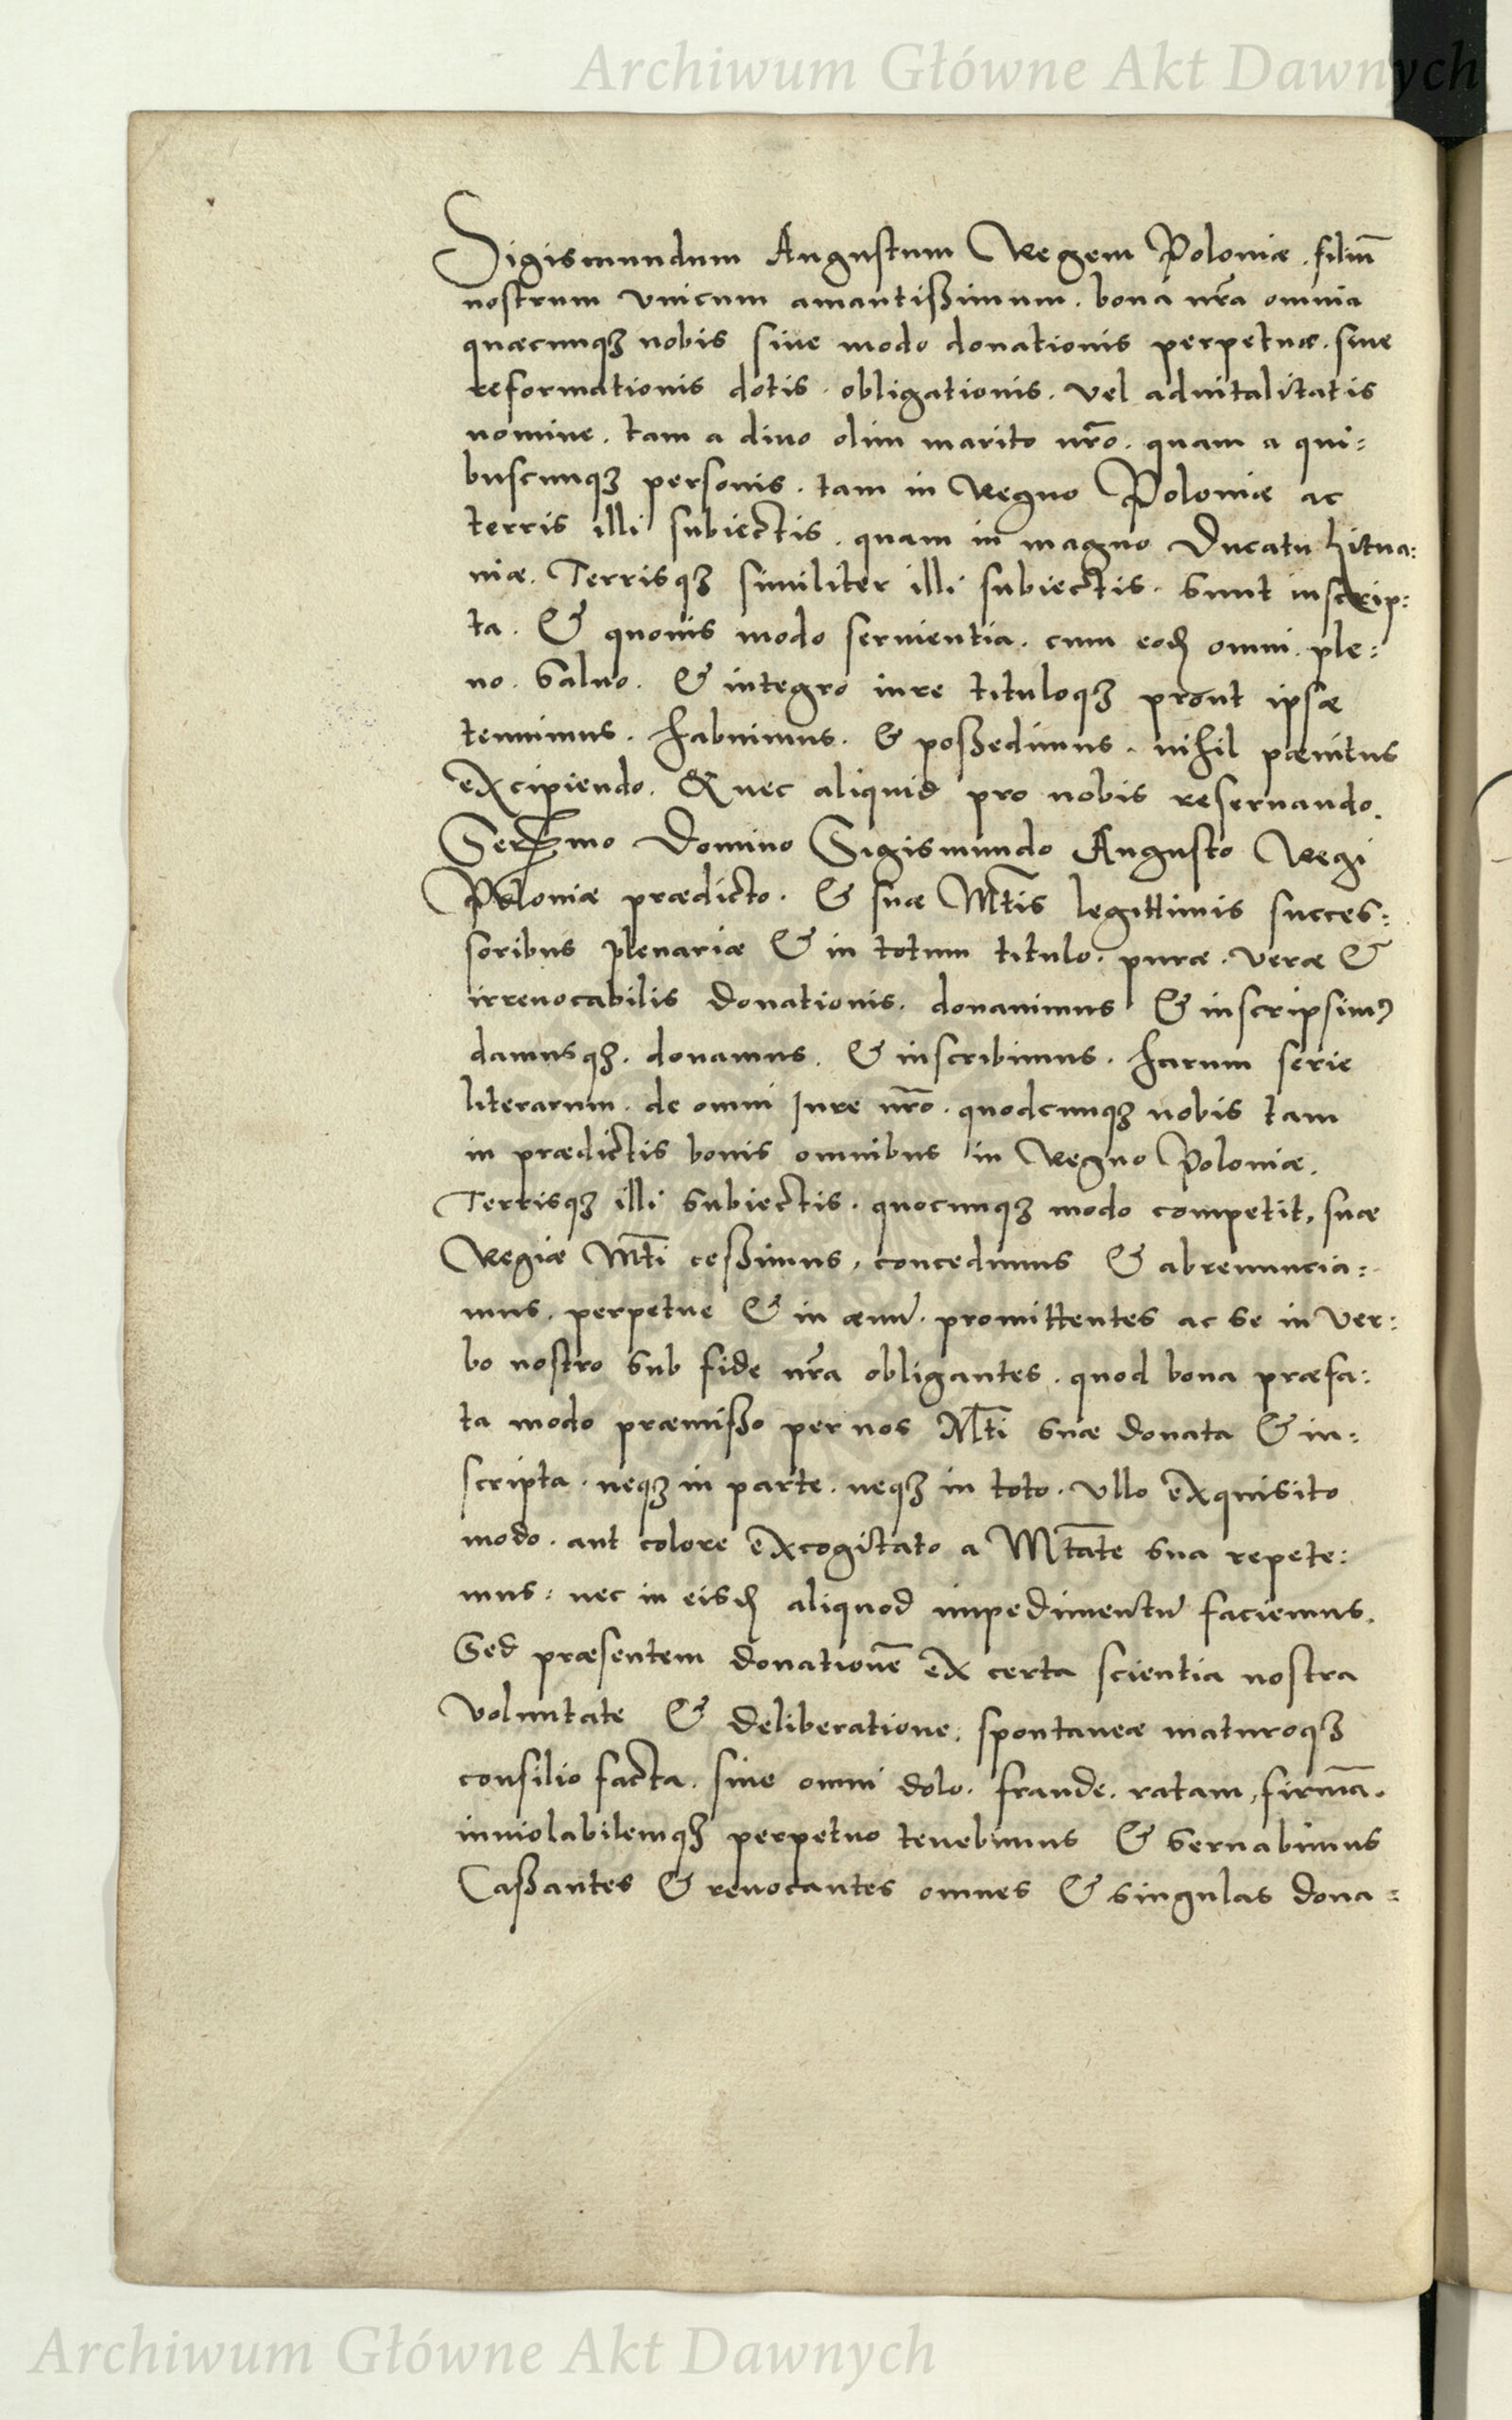 Archiwum Główne Akt Dawnych
Sigismundum Augustum Regem Poloniæ . filiū
nostrum vnicum amantißimum . bona nr̃a omnia
quæcunqꝫ nobis siue modo donationis perpetuæ . siue
reformationis dotis . obligationis . vel aduitalitatis
nomine . tam a diuo olim marito nr̃o . quam a qui:
buscunqꝫ personis . tam in Regno Poloniæ ac
terris illi subiectis . quam in magno Ducatu Litua:
niæ . Terrisqꝫ similiter illi subiectis . sunt inscrip:
ta . & quouis modo seruientia . cum eod omni . ple:
no . saluo . & integro iure tituloqꝫ prout ipsæ
tenuimus . habuimus . & poßedimus . nihil pænitus
excipiendo . & nec aliquid pro nobis reseruando .
Serꝫmo Domino Sigismundo Augusto Regi
Poloniæ prædicto . & suæ Mt̃is legittimis succes:
soribus plenariæ & in totum titulo . puræ . veræ &
irreuocabilis donationis . donauimus & inscripsimꝰ
damusqꝫ . donamus . & inscribimus . harum serie
literarum . de omni Jure nr̃o . quodcunqꝫ nobis tam
in prædictis bonis omnibus in Regno Poloniæ .
Terrisqꝫ illi subiectis . quocunqꝫ modo competit, suæ
Regiæ Mt̃i ceßimus, concedimus & abrenuncia:
mus . perpetue & in æuū . promittentes ac se in ver:
bo nostro sub fide nr̃a obligantes . quod bona præfa:
ta modo præmißo per nos Mt̃i suæ donata & in:
scripta . neqꝫ in parte . neqꝫ in toto . vllo exquisito
modo . aut colore excogitato a Mt̃ate sua repete:
mus : nec in eisd aliquod impedimentū faciemus .
Sed præsentem donationē ex certa scientia nostra
voluntate & deliberatione; spontaneæ maturoqꝫ
consilio facta . sine omni dolo . fraude . ratam, firmā .
inuiolabilemqꝫ perpetuo tenebimus & seruabimus
Caßantes & reuocantes omnes & singulas dona:
Archiwum Główne Akt Dawnych